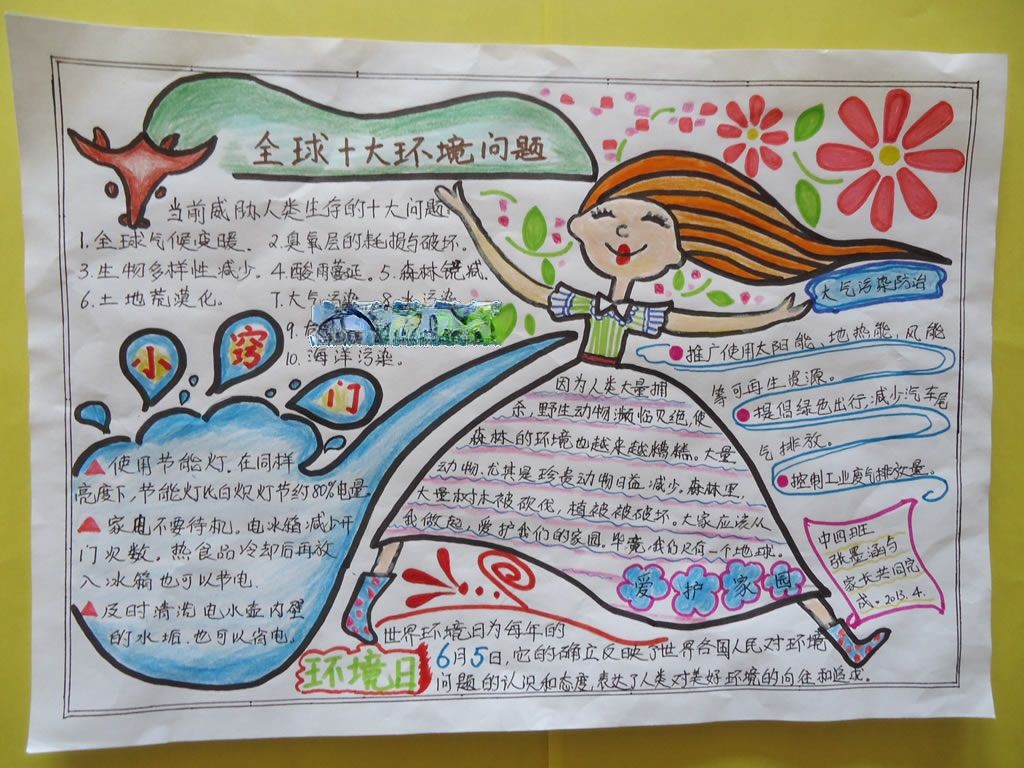 全球十大环境问题
当前威胁人类生存的十大问题
1.全球气候变暖. 2.臭氧层的耗损与破坏.
3.生物多样性减少. 4.酸雨蔓延. 5.森林锐减.
6.土地荒漠化. 7.大气污染. 8.水污染
9.
10.海洋污染.
小窍门
▲使用节能灯.在同样
亮度下,节能灯比白炽灯节约80%电量
▲家电不要待机.电冰箱减少开
门次数.热食品冷却后再放
入冰箱也可以节电.
▲及时清洗电水壶内壁
的水垢.也可以省电.
大气污染防治
●推广使用太阳能、地热能、风能
等可再生资源。
●提倡绿色出行,减少汽车尾
气排放。
●控制工业废气排放量。
因为人类大量捕
杀,野生动物濒临灭绝,使
森林的环境也越来越糟糕。大量
动物.尤其是珍贵动物日益减少。森林里,
大量树木被砍伐,植被被破坏。大家应该从
我做起,爱护我们的家园。毕竟,我们只有一个地球.
爱护家园
中四班
张墨涵与
家长共同完
成.2013.4.
环境日
世界环境日为每年的
6月5日,它的确立反映了世界各国人民对环境
问题的认识和态度,表达了人类对美好环境的向往和追求。